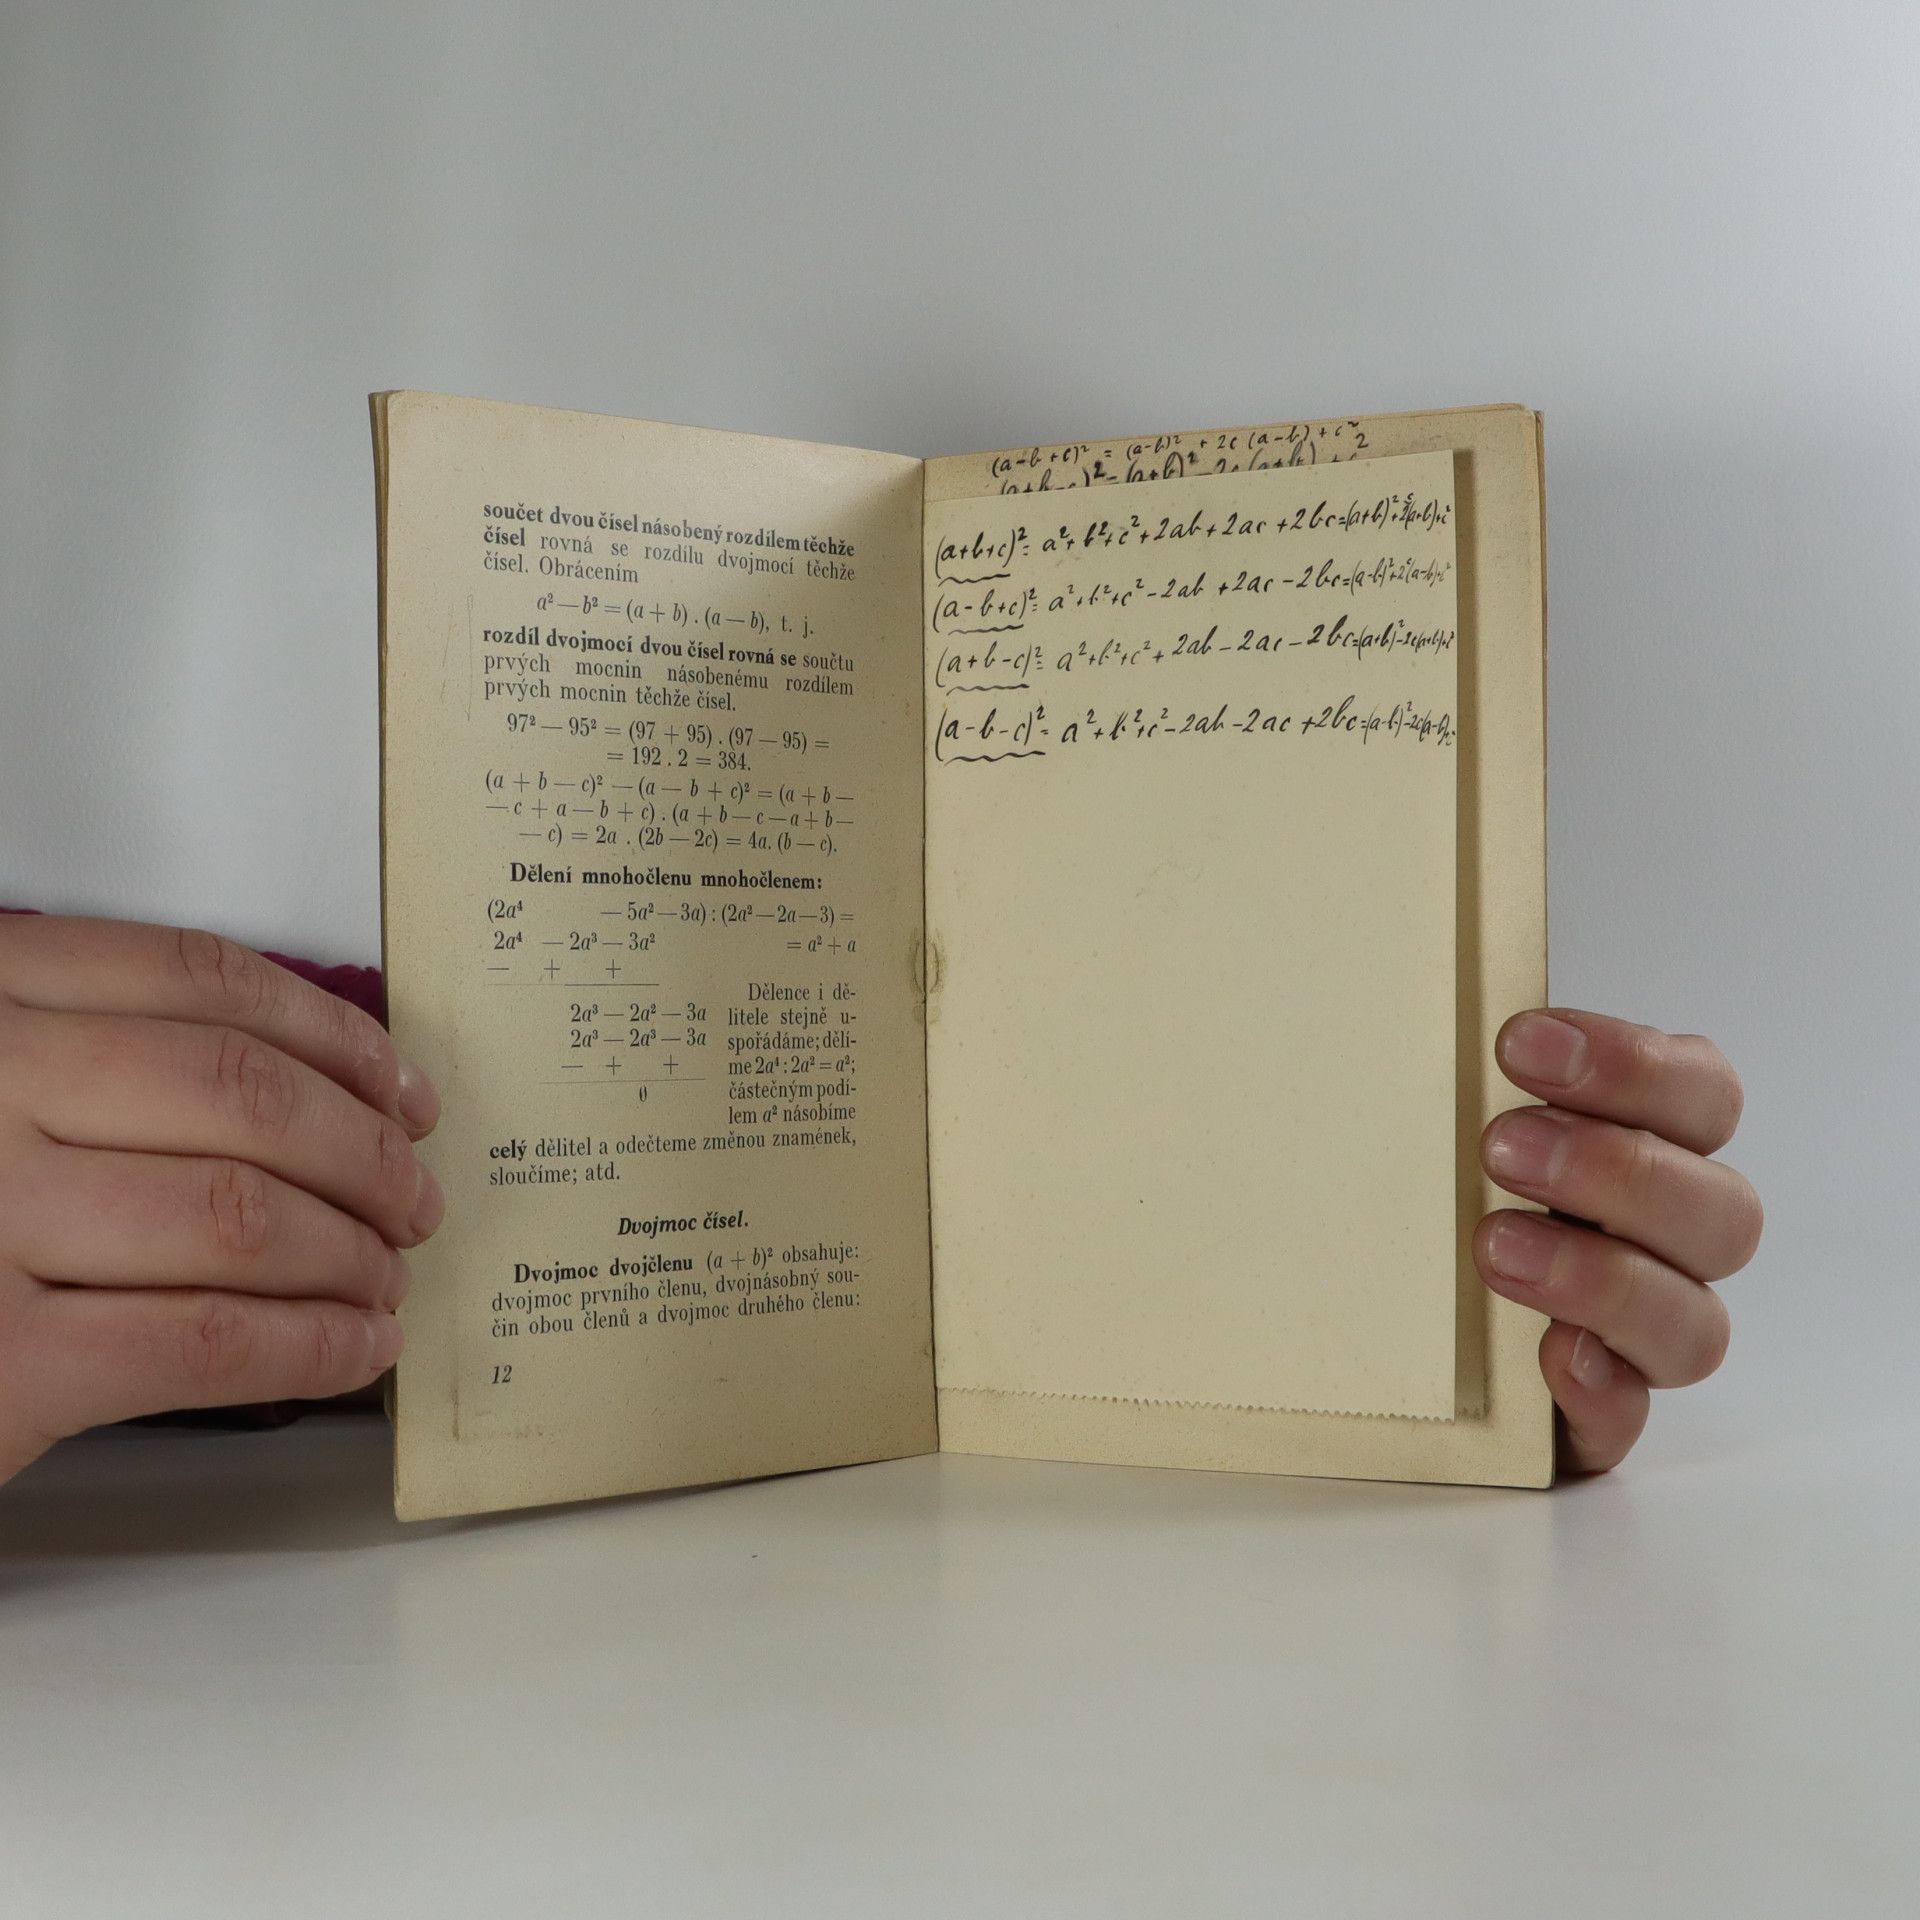 součet dvou čísel násobený rozdílem těchže
čísel rovná se rozdílu dvojmocí těchže
čísel. Obrácením
a² — b² = (a + b) . (a — b), t. j.
rozdíl dvojmocí dvou čísel rovná se součtu
prvých mocnin násobenému rozdílem
prvých mocnin těchže čísel.
97² — 95² = (97 + 95) . (97 — 95) =
= 192 . 2 = 384.
(a + b — c)² — (a — b + c)² = (a + b —
— c + a — b + c) . (a + b — c — a + b —
— c) = 2a . (2b — 2c) = 4a. (b — c).
Dělení mnohočlenu mnohočlenem:
(2a⁴ — 5a² — 3a) : (2a² — 2a — 3) =
2a⁴ — 2a³ — 3a² = a² + a
— + +
Dělence i dě-
2a³ — 2a² — 3a litele stejně u-
2a³ — 2a³ — 3a spořádáme; dělí-
— + + me 2a⁴ : 2a² = a²;
0 částečným podí-
lem a² násobíme
celý dělitel a odečteme změnou znamének,
sloučíme; atd.
Dvojmoc čísel.
Dvojmoc dvojčlenu (a + b)² obsahuje:
dvojmoc prvního členu, dvojnásobný sou-
čin obou členů a dvojmoc druhého členu:
12
(a-b+c)² = (a-b)² + 2c (a-b) + c²
(a+b-c)² = (a+b)² - 2c (a+b) + c²
(a+b+c)² = a²+b²+c²+2ab+2ac+2bc=(a+b)²+2c(a+b)+c²
(a-b+c)² = a²+b²+c²-2ab+2ac-2bc=(a-b)²+2c(a-b)+c²
(a+b-c)² = a²+b²+c²+2ab-2ac-2bc=(a+b)²-2c(a+b)+c²
(a-b-c)² = a²+b²+c²-2ab-2ac+2bc=(a-b)²-2c(a-b)